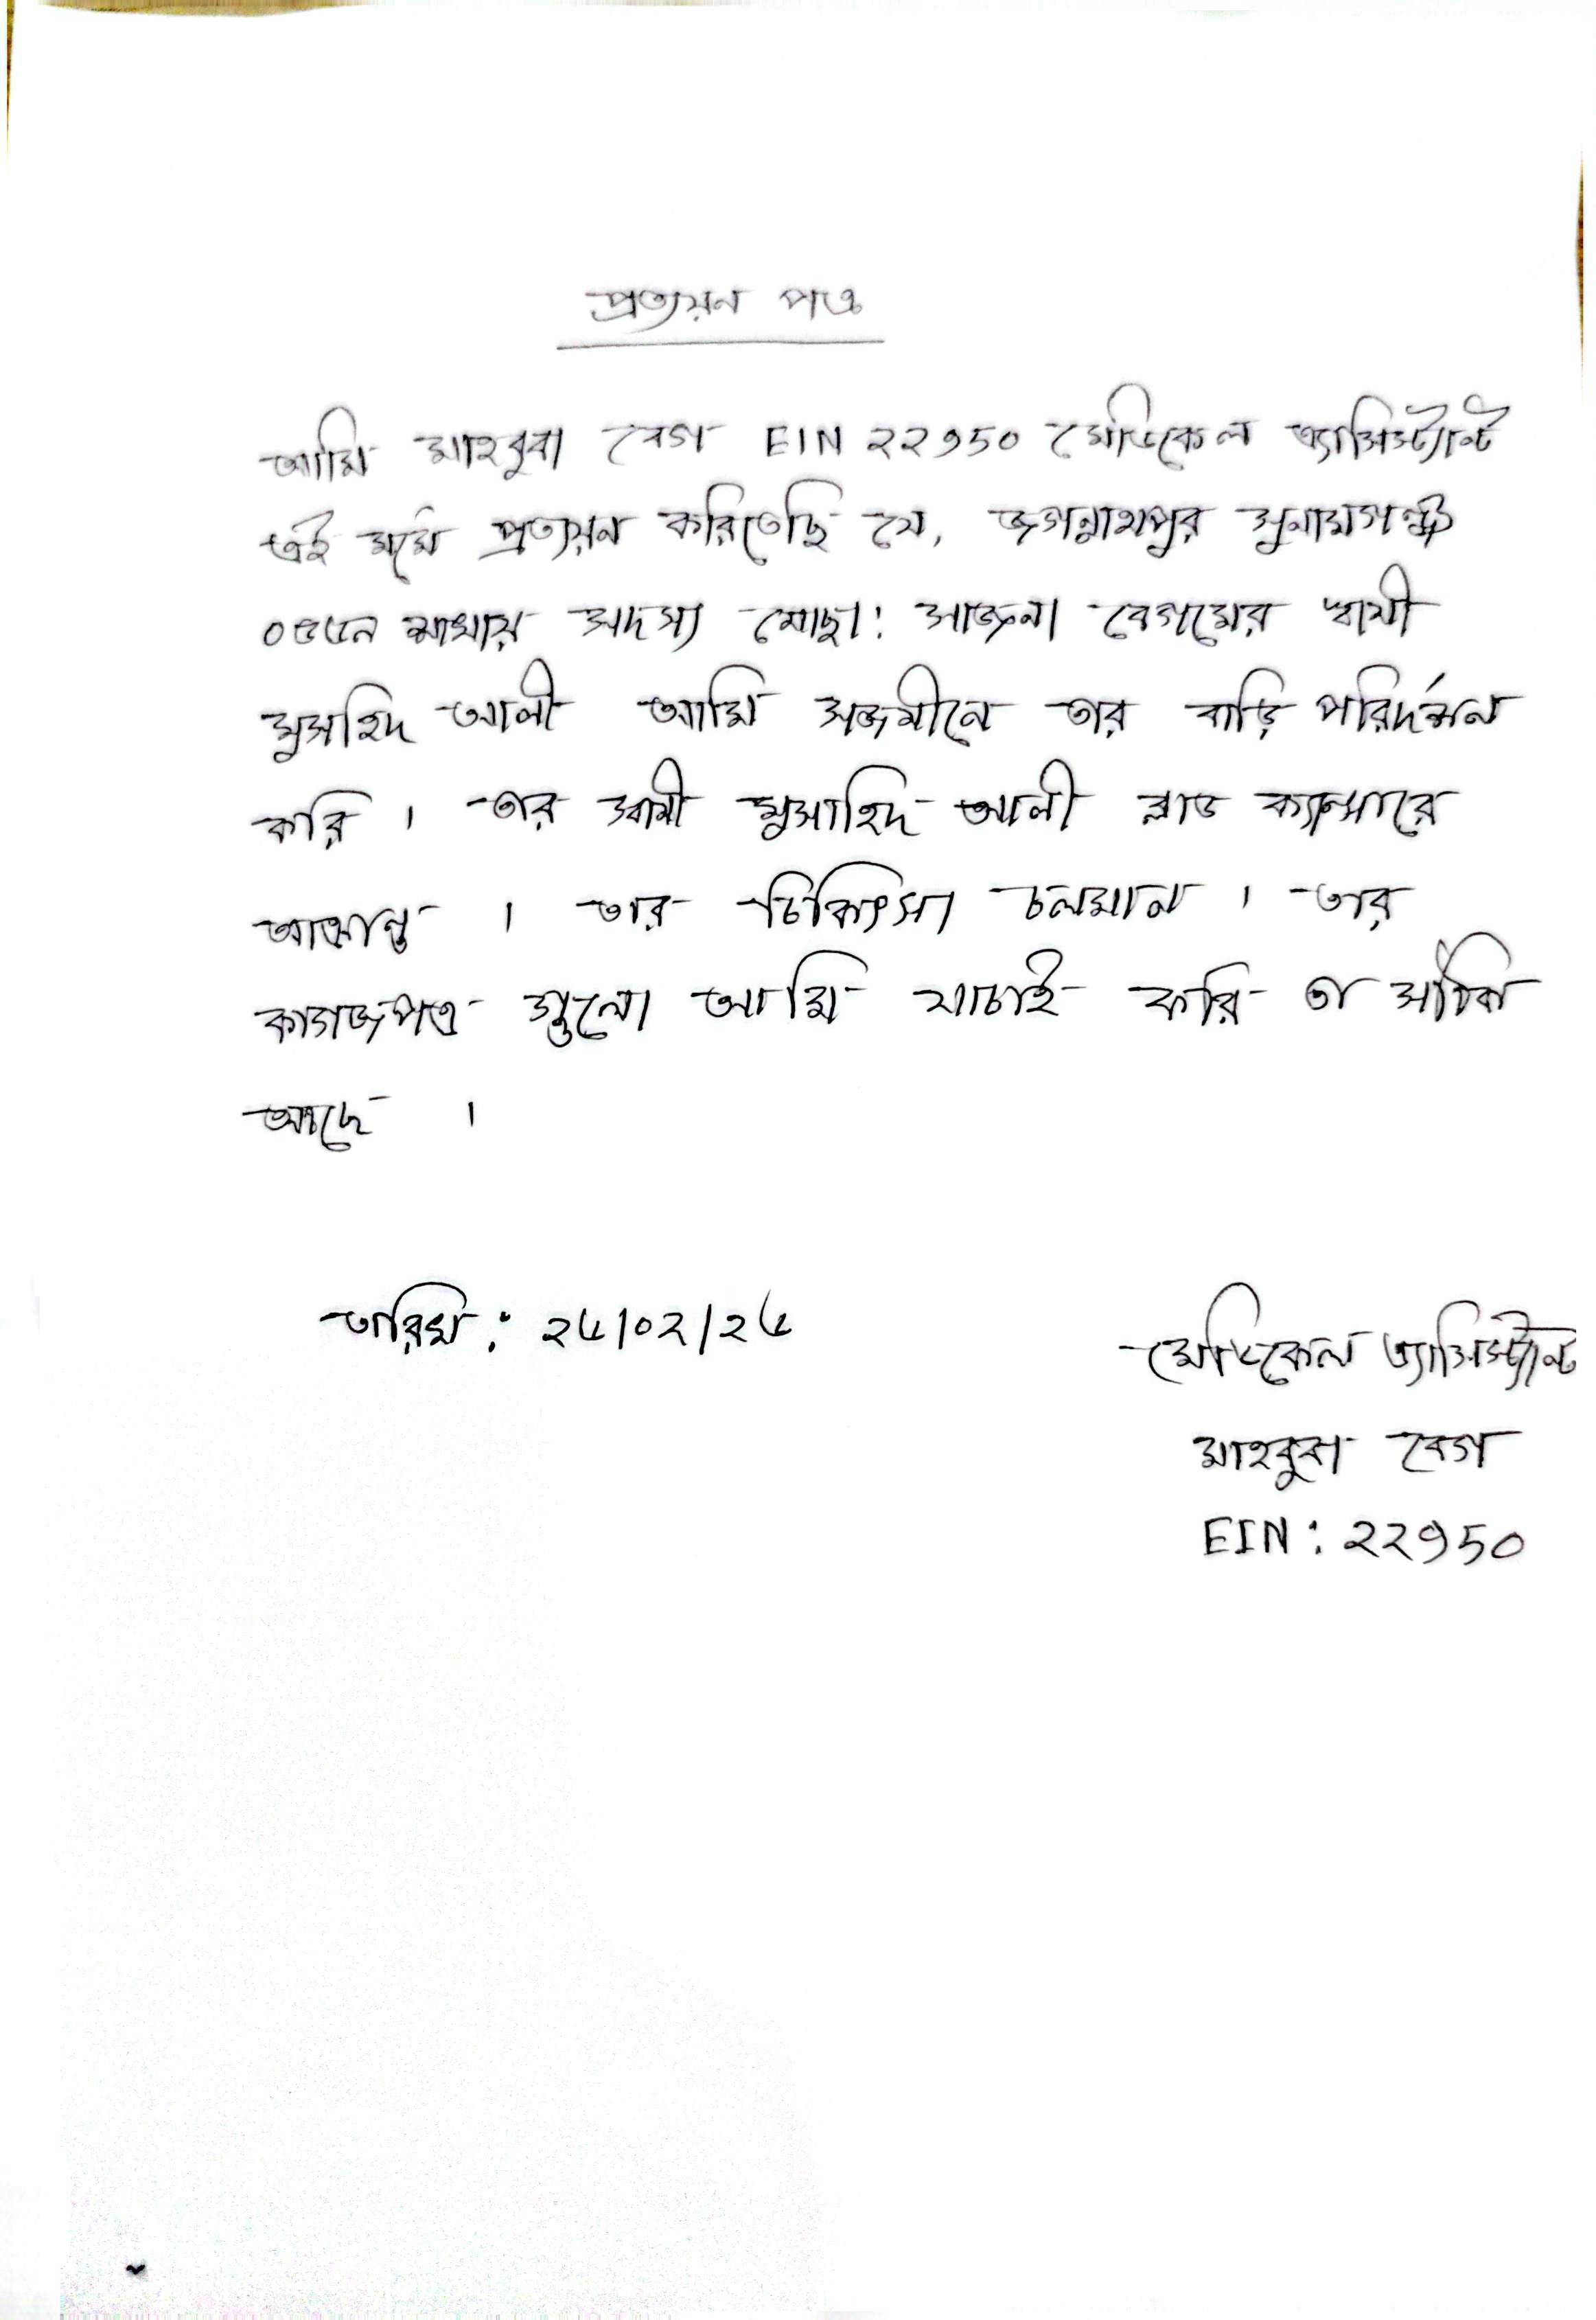 প্রত্যয়ন পত্র
আমি মাহবুবা বেগ EIN ২২৭৫০ মেডিকেল এ্যাসিস্ট্যান্ট
এই মর্মে প্রত্যয়ন করিতেছি যে, জগন্নাথপুর সুনামগঞ্জ
শাখায় সদস্য মোছা: সাজনা বেগমের স্বামী
মুসাহিদ আলী আমি সরজমীনে তার বাড়ি পরিদর্শন
করি । তার স্বামী মুসাহিদ আলী ব্লাড ক্যান্সারে
আক্রান্ত । তার চিকিৎসা চলমান । তার
কাগজপত্র গুলো আমি যাচাই করি তা সঠিক
আছে ।
তারিখ: ২৫/০২/২৫
মেডিকেল এ্যাসিস্ট্যান্ট
মাহবুবা বেগ
EIN : ২২৭৫০